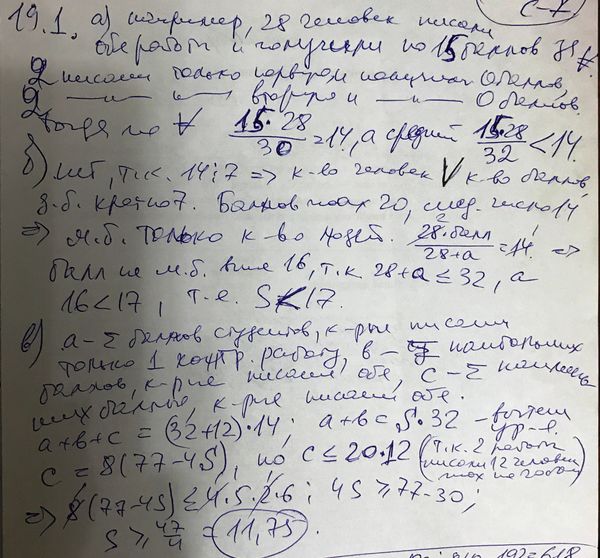 С-7
19.1. а) например, 28 человек писали
обе работы и получили по 15 баллов за ∀.
2 писали только первую получили 0 баллов,
2 —"— —"— вторую и —"— 0 баллов.
Тогда по ∀ 15·28/30 = 14, а средний 15·28/32 < 14.
б) нет, т.к. 14⋮7 => к-во человек ∨ к-во баллов
д.б. кратно 7. Баллов max 20, след. число 14
=> м.б. только к-во людей. 28·балл/28+a = 14 =>
балл не м.б. выше 16, т.к. 28+a ≤ 32, а
16 < 17, т.е. S < 17.
в) a – Σ баллов студентов, к-рые писали
только 1 контр. работу, b – Σ наибольших
баллов, к-рые писали обе, c – Σ наимень
ших баллов, к-рые писали обе.
a+b+c = (32+12)·14; a+b = S·32 – вычтем ур-е.
c = 8(77-4S), но c ≤ 20·12 (т.к. 2 работы писали 12 человек
=> 8(77-4S) ≤ 4·5·2·6; 4S ≥ 77-30;
S ≥ 47/4 = 11,75.